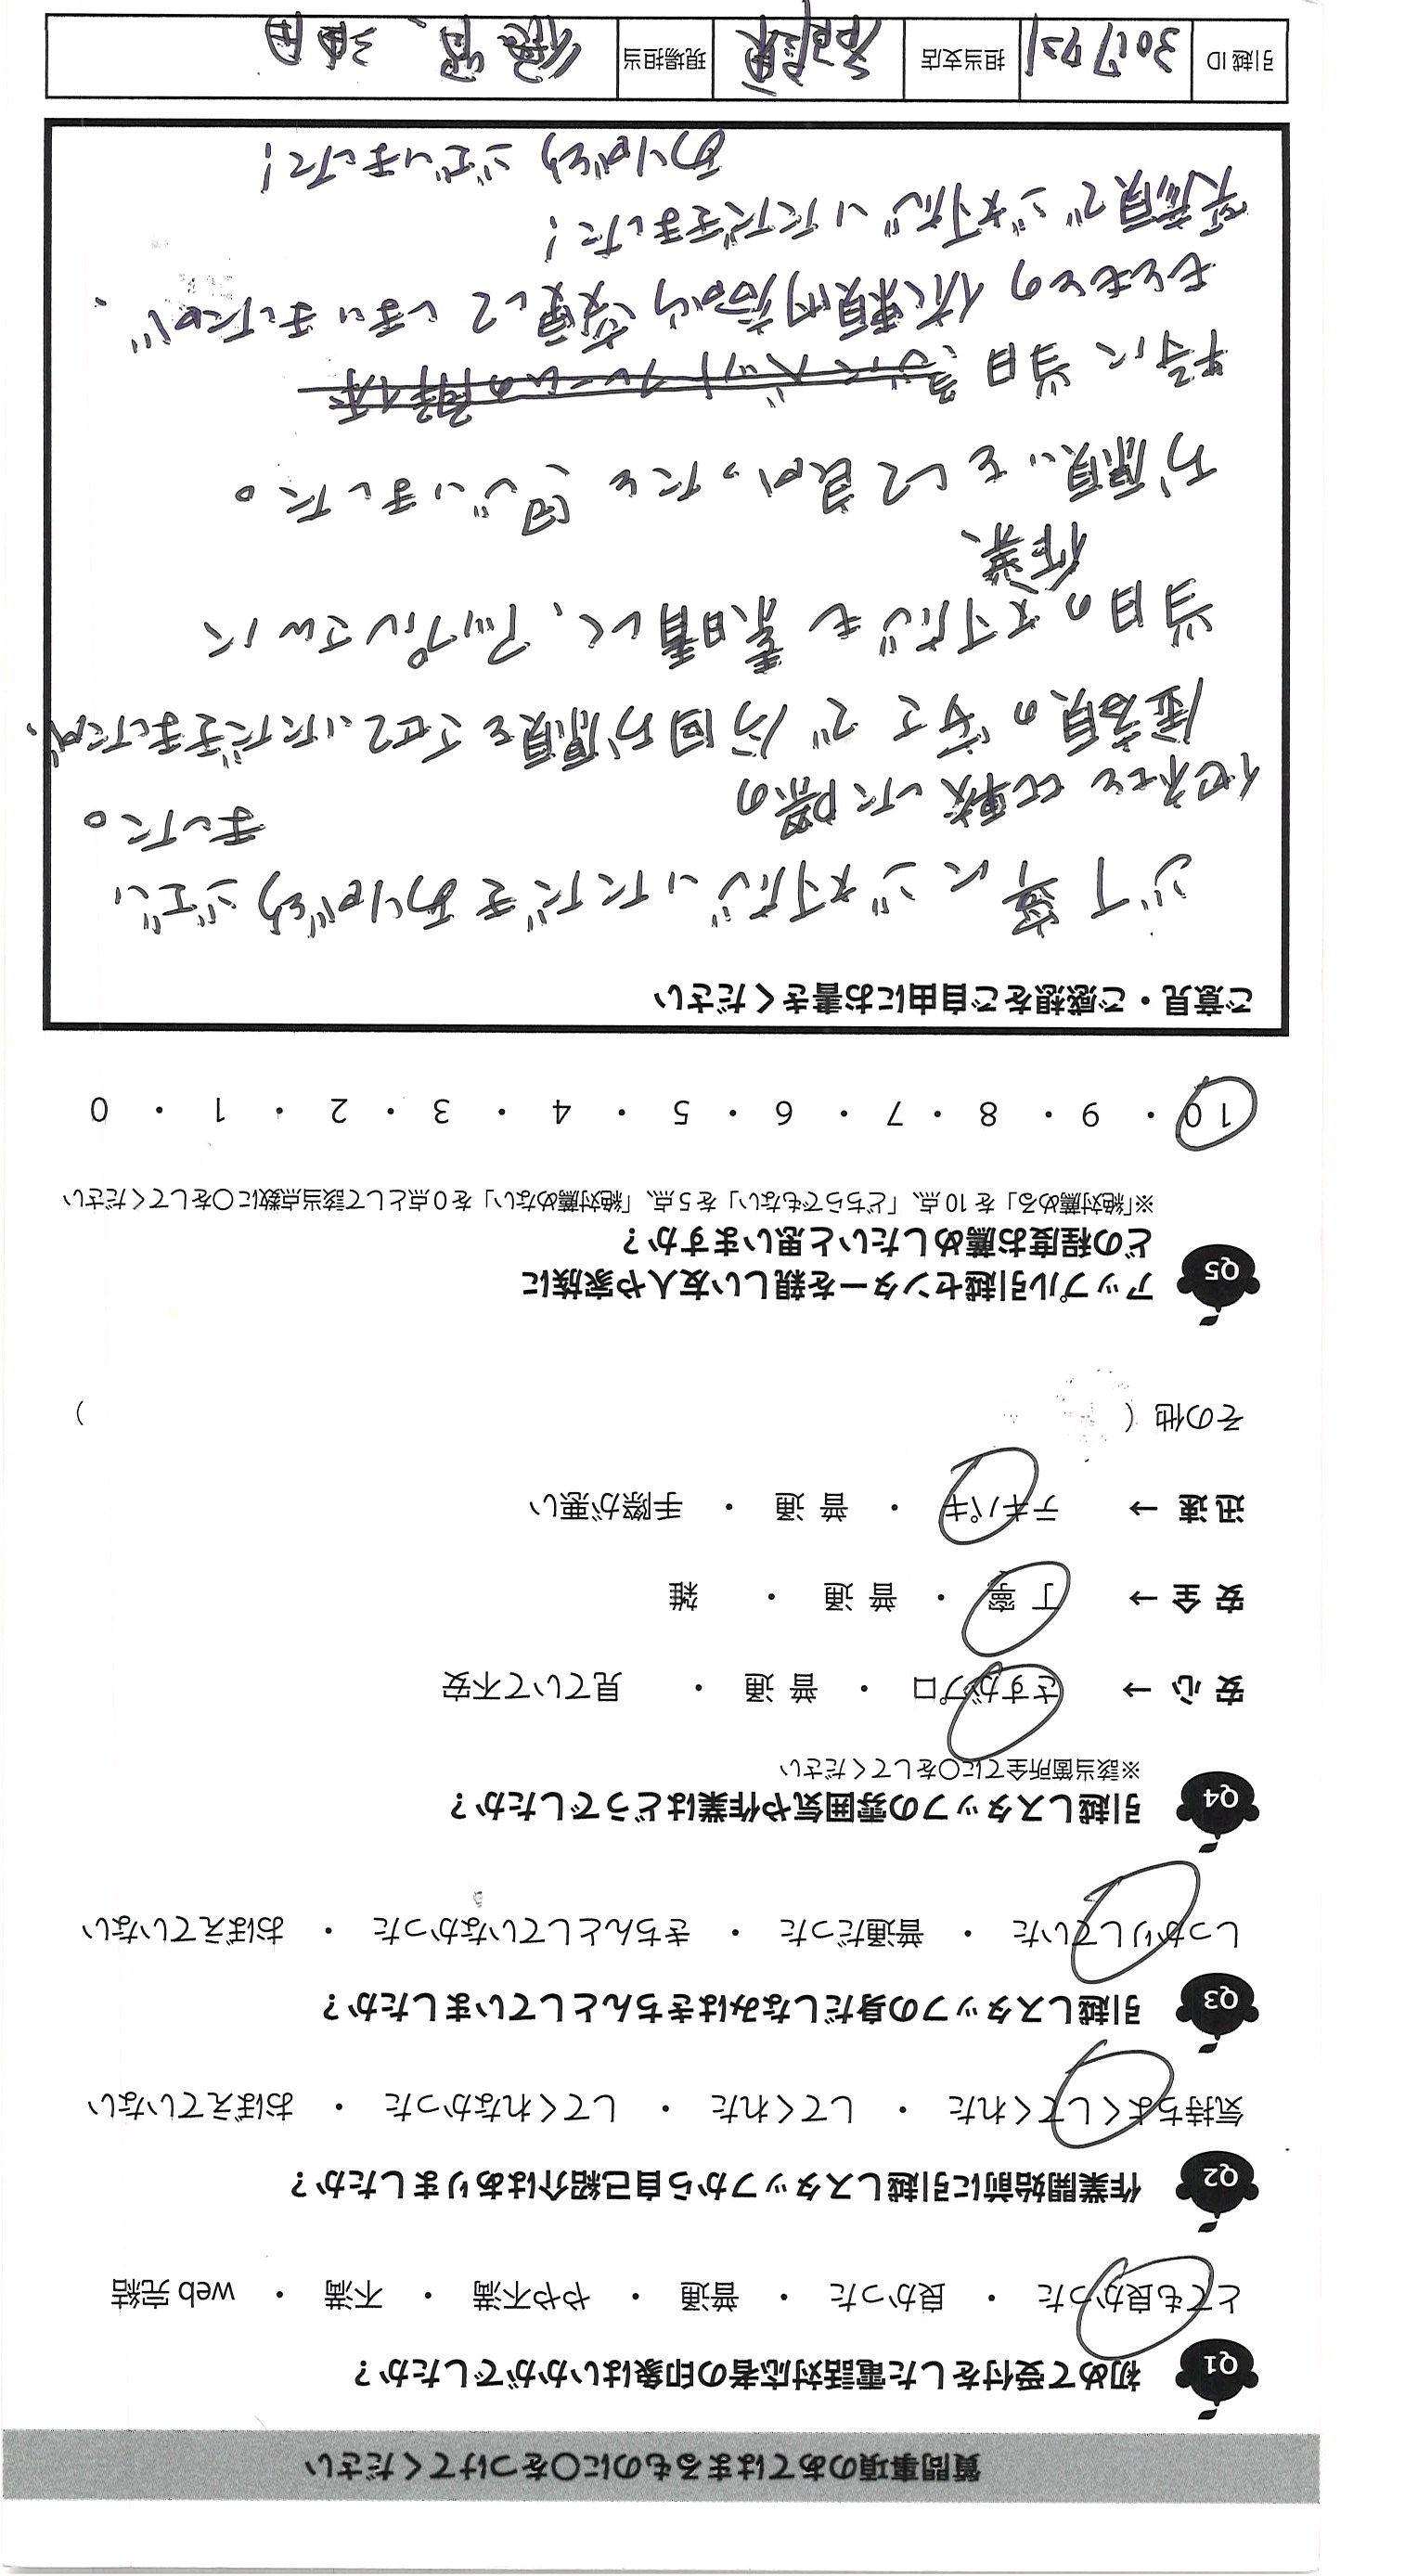 質問事項のあてはまるものに○をつけてください
Q1 初めて受付をした電話対応者の印象はいかがでしたか？
とても良かった ・ 良かった ・ 普通 ・ やや不満 ・ 不満 ・ web 完結
Q2 作業開始前に引越しスタッフから自己紹介はありましたか？
気持ちよくしてくれた ・ してくれた ・ してくれなかった ・ おぼえていない
Q3 引越しスタッフの身だしなみはきちんとしていましたか？
しっかりしていた ・ 普通だった ・ きちんとしていなかった ・ おぼえていない
Q4 引越しスタッフの雰囲気や作業はどうでしたか？
※該当箇所全てに○をしてください
安 心 → さすがプロ ・ 普 通 ・ 見ていて不安
安 全 → 丁 寧 ・ 普 通 ・ 雑
迅 速 → テキパキ ・ 普 通 ・ 手際が悪い
その他（ ）
Q5 アップル引越センターを親しい友人や家族に
どの程度お薦めしたいと思いますか？
※「絶対薦める」を 10 点、「どちらでもない」を 5 点、「絶対薦めない」を 0 点として該当点数に○をしてください
10 ・ 9 ・ 8 ・ 7 ・ 6 ・ 5 ・ 4 ・ 3 ・ 2 ・ 1 ・ 0
ご意見・ご感想をご自由にお書きください
ご丁寧にご対応いただきありがとうござい
ました。
他社と比較した際の
金額の安さで今回お願いをさせていただきましたが、
当日の対応も素晴しく、アップルさんに
作業
お願いをして良かったと感じいました。
特に当日、急にベッドフレームの解体
もともとの依頼内容から変更してしまいましたが、
笑顔でご対応いただきました！
ありがとうございました！
引越 ID 担当支店 現場担当